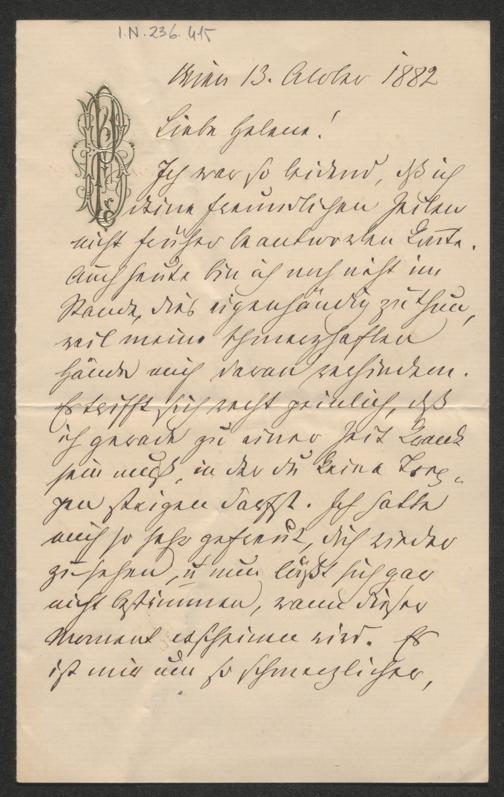 I.N. 236.415
Wien 13. October 1882
Liebe Helene!
Ich war so leidend, daß ich
deine freundlichen Zeilen
nicht früher beantworten konnte.
Auch heute bin ich noch nicht im
Stande, dies eigenhändig zu thun,
weil meine schmerzhaften
Hände mich daran verhindern.
Es trifft sich recht peinlich, daß
ich gerade zu einer Zeit krank
sein muß, in der du keine Trep-
pen steigen darfst. Ich hatte
mich so sehr gefreut, dich wieder
zu sehen, u nun läßt sich gar
nicht bestimmen, wann dieser
Moment erscheinen wird. Es
ist mir um so schmerzlicher,